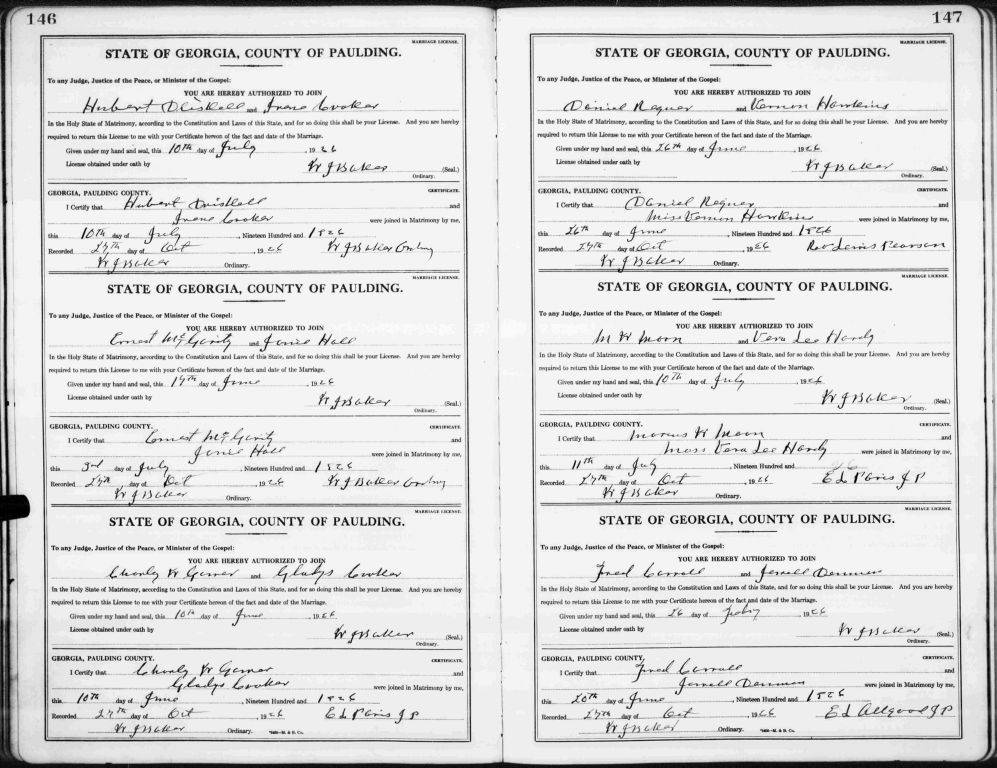 146
MARRIAGE LICENSE.
STATE OF GEORGIA, COUNTY OF PAULDING.
To any Judge, Justice of the Peace, or Minister of the Gospel:
YOU ARE HEREBY AUTHORIZED TO JOIN
Hubert Driskell and Irene Crocker
In the Holy State of Matrimony, according to the Constitution and Laws of this State, and for so doing this shall be your License. And you are hereby
required to return this License to me with your Certificate hereon of the fact and date of the Marriage.
Given under my hand and seal, this 10th day of July, 1926
License obtained under oath by
W J Baker (Seal.)
Ordinary.
GEORGIA, PAULDING COUNTY. CERTIFICATE.
I Certify that Hubert Driskell and
Irene Crocker were joined in Matrimony by me,
this 10th day of July, Nineteen Hundred and 1926
Recorded 27th day of Oct, 1926 W J Baker Ordinary
W J Baker Ordinary.
MARRIAGE LICENSE.
STATE OF GEORGIA, COUNTY OF PAULDING.
To any Judge, Justice of the Peace, or Minister of the Gospel:
YOU ARE HEREBY AUTHORIZED TO JOIN
Ernest McGarity and Janie Hall
In the Holy State of Matrimony, according to the Constitution and Laws of this State, and for so doing this shall be your License. And you are hereby
required to return this License to me with your Certificate hereon of the fact and date of the Marriage.
Given under my hand and seal, this day of June, 1926
License obtained under oath by
W J Baker (Seal.)
Ordinary.
GEORGIA, PAULDING COUNTY. CERTIFICATE.
I Certify that Ernest McGarity and
Janie Hall were joined in Matrimony by me,
this 3rd day of July, Nineteen Hundred and 1926
Recorded 27th day of Oct, 1926 W J Baker Ordinary
W J Baker Ordinary.
MARRIAGE LICENSE.
STATE OF GEORGIA, COUNTY OF PAULDING.
To any Judge, Justice of the Peace, or Minister of the Gospel:
YOU ARE HEREBY AUTHORIZED TO JOIN
Charly W Garner and Gladys Crocker
In the Holy State of Matrimony, according to the Constitution and Laws of this State, and for so doing this shall be your License. And you are hereby
required to return this License to me with your Certificate hereon of the fact and date of the Marriage.
Given under my hand and seal, this 10th day of June, 1926
License obtained under oath by
W J Baker (Seal.)
Ordinary.
GEORGIA, PAULDING COUNTY. CERTIFICATE.
I Certify that Charly W Garner and
Gladys Crocker were joined in Matrimony by me,
this 10th day of June, Nineteen Hundred and 1926
Recorded 27th day of Oct, 1926 E L Paris J P
W J Baker Ordinary.
147
MARRIAGE LICENSE.
STATE OF GEORGIA, COUNTY OF PAULDING.
To any Judge, Justice of the Peace, or Minister of the Gospel:
YOU ARE HEREBY AUTHORIZED TO JOIN
Daniel Reguer and Vernon Hawkins
In the Holy State of Matrimony, according to the Constitution and Laws of this State, and for so doing this shall be your License. And you are hereby
required to return this License to me with your Certificate hereon of the fact and date of the Marriage.
Given under my hand and seal, this 26th day of June, 1926
License obtained under oath by
W J Baker (Seal.)
Ordinary.
GEORGIA, PAULDING COUNTY. CERTIFICATE.
I Certify that Daniel Reguer and
Miss Vernon Hawkins were joined in Matrimony by me,
this 26th day of June, Nineteen Hundred and 1926
Recorded 27th day of Oct, 1926 Rev Lewis Pearson
W J Baker Ordinary.
MARRIAGE LICENSE.
STATE OF GEORGIA, COUNTY OF PAULDING.
To any Judge, Justice of the Peace, or Minister of the Gospel:
YOU ARE HEREBY AUTHORIZED TO JOIN
M W Moon and Vera Lee Hardy
In the Holy State of Matrimony, according to the Constitution and Laws of this State, and for so doing this shall be your License. And you are hereby
required to return this License to me with your Certificate hereon of the fact and date of the Marriage.
Given under my hand and seal, this 10th day of July, 1926
License obtained under oath by
W J Baker (Seal.)
Ordinary.
GEORGIA, PAULDING COUNTY. CERTIFICATE.
I Certify that Marcus W Moon and
Miss Vera Lee Hardy were joined in Matrimony by me,
this 11th day of July, Nineteen Hundred and 26
Recorded 27th day of Oct, 1926 E L Paris J P
W J Baker Ordinary.
MARRIAGE LICENSE.
STATE OF GEORGIA, COUNTY OF PAULDING.
To any Judge, Justice of the Peace, or Minister of the Gospel:
YOU ARE HEREBY AUTHORIZED TO JOIN
Fred Carroll and Jerrell Denman
In the Holy State of Matrimony, according to the Constitution and Laws of this State, and for so doing this shall be your License. And you are hereby
required to return this License to me with your Certificate hereon of the fact and date of the Marriage.
Given under my hand and seal, this 26 day of, 1926
License obtained under oath by
W J Baker (Seal.)
Ordinary.
GEORGIA, PAULDING COUNTY. CERTIFICATE.
I Certify that Fred Carroll and
Jerrell Denman were joined in Matrimony by me,
this 20th day of June, Nineteen Hundred and 1926
Recorded 27th day of Oct, 1926 E L Allgood J P
W J Baker Ordinary.